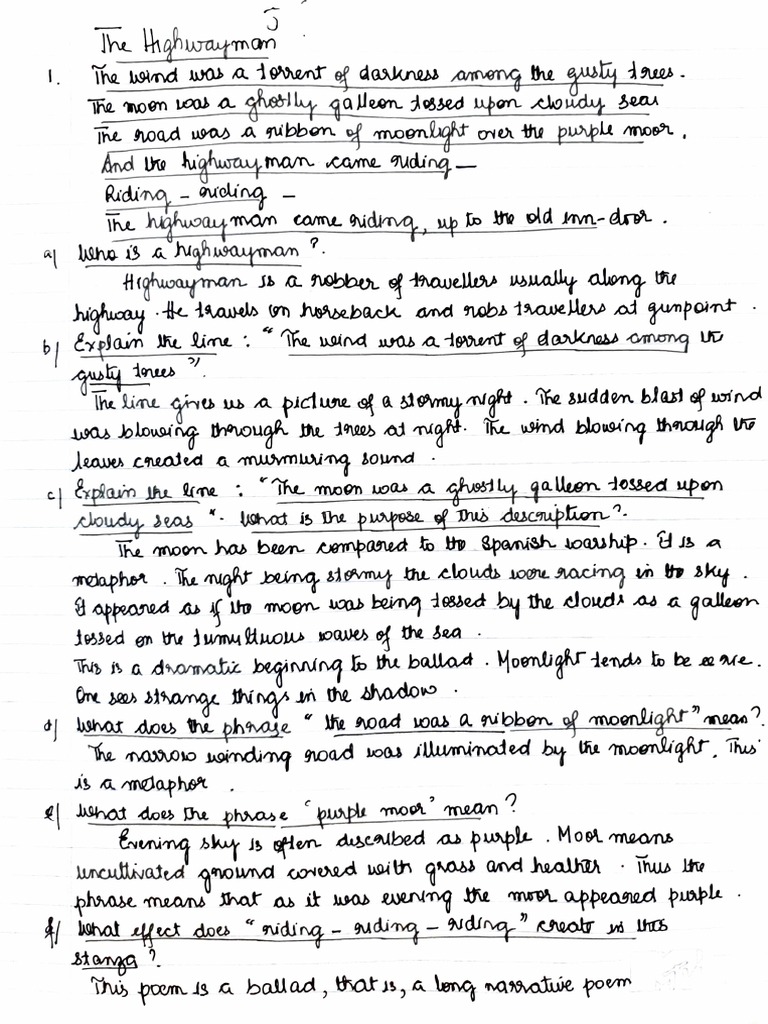 The Highwayman
1. The wind was a torrent of darkness among the gusty trees.
The moon was a ghostly galleon tossed upon cloudy seas
The road was a ribbon of moonlight over the purple moor,
And the highwayman came riding —
Riding – riding –
The highwayman came riding, up to the old inn-door.
a) Who is a highwayman?
Highwayman is a robber of travellers usually along the
highway. He travels on horseback and robs travellers at gunpoint.
b) Explain the line: "The wind was a torrent of darkness among the
gusty trees".
The line gives us a picture of a stormy night. The sudden blast of wind
was blowing through the trees at night. The wind blowing through the
leaves created a murmuring sound.
c) Explain the line: "The moon was a ghostly galleon tossed upon
cloudy seas". What is the purpose of this description?
The moon has been compared to the Spanish warship. It is a
metaphor. The night being stormy the clouds were racing in the sky.
It appeared as if the moon was being tossed by the clouds as a galleon
tossed on the tumultuous waves of the sea.
This is a dramatic beginning to the ballad. Moonlight tends to be
One sees strange things in the shadow.
d) What does the phrase "the road was a ribbon of moonlight" mean?
The narrow winding road was illuminated by the moonlight. This
is a metaphor.
e) What does the phrase 'purple moor' mean?
Evening sky is often described as purple. Moor means
uncultivated ground covered with grass and heather. Thus the
phrase means that as it was evening the moor appeared purple.
f) What effect does "riding – riding – riding" create in this
stanza?
This poem is a ballad, that is, a long narrative poem